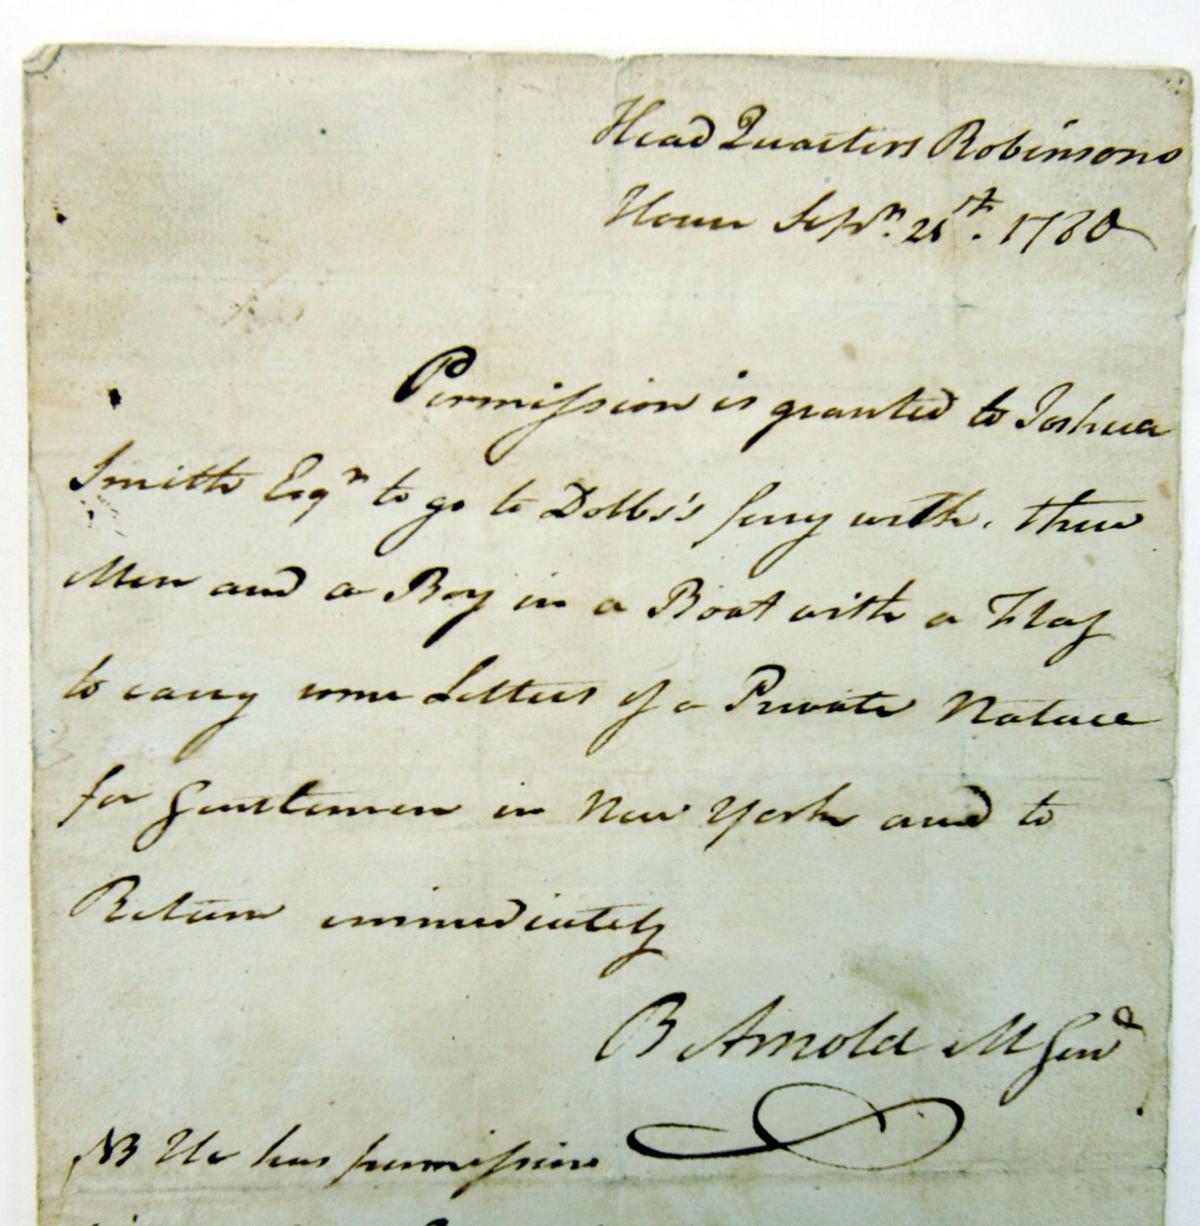 Head Quarters Robinsons
House Sepr. 21st. 1780
Permission is granted to Joshua
Smith Esqr to go to Dobbs's ferry with three
Men and a Boy in a Boat with a Flag
to carry some Letters of a Private Nature
for Gentlemen in New York and to
Return immediately
B Arnold M Genl
NB He has permission